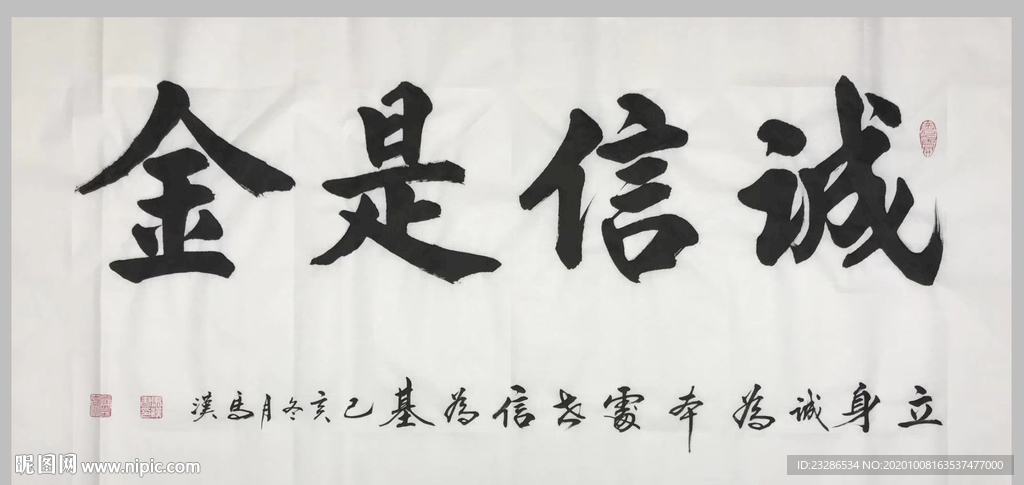 誠信是金
立身誠為本處世信為基己亥冬月馬漢
昵图网 www.nipic.com
ID:23286534 NO:20201008163537477000